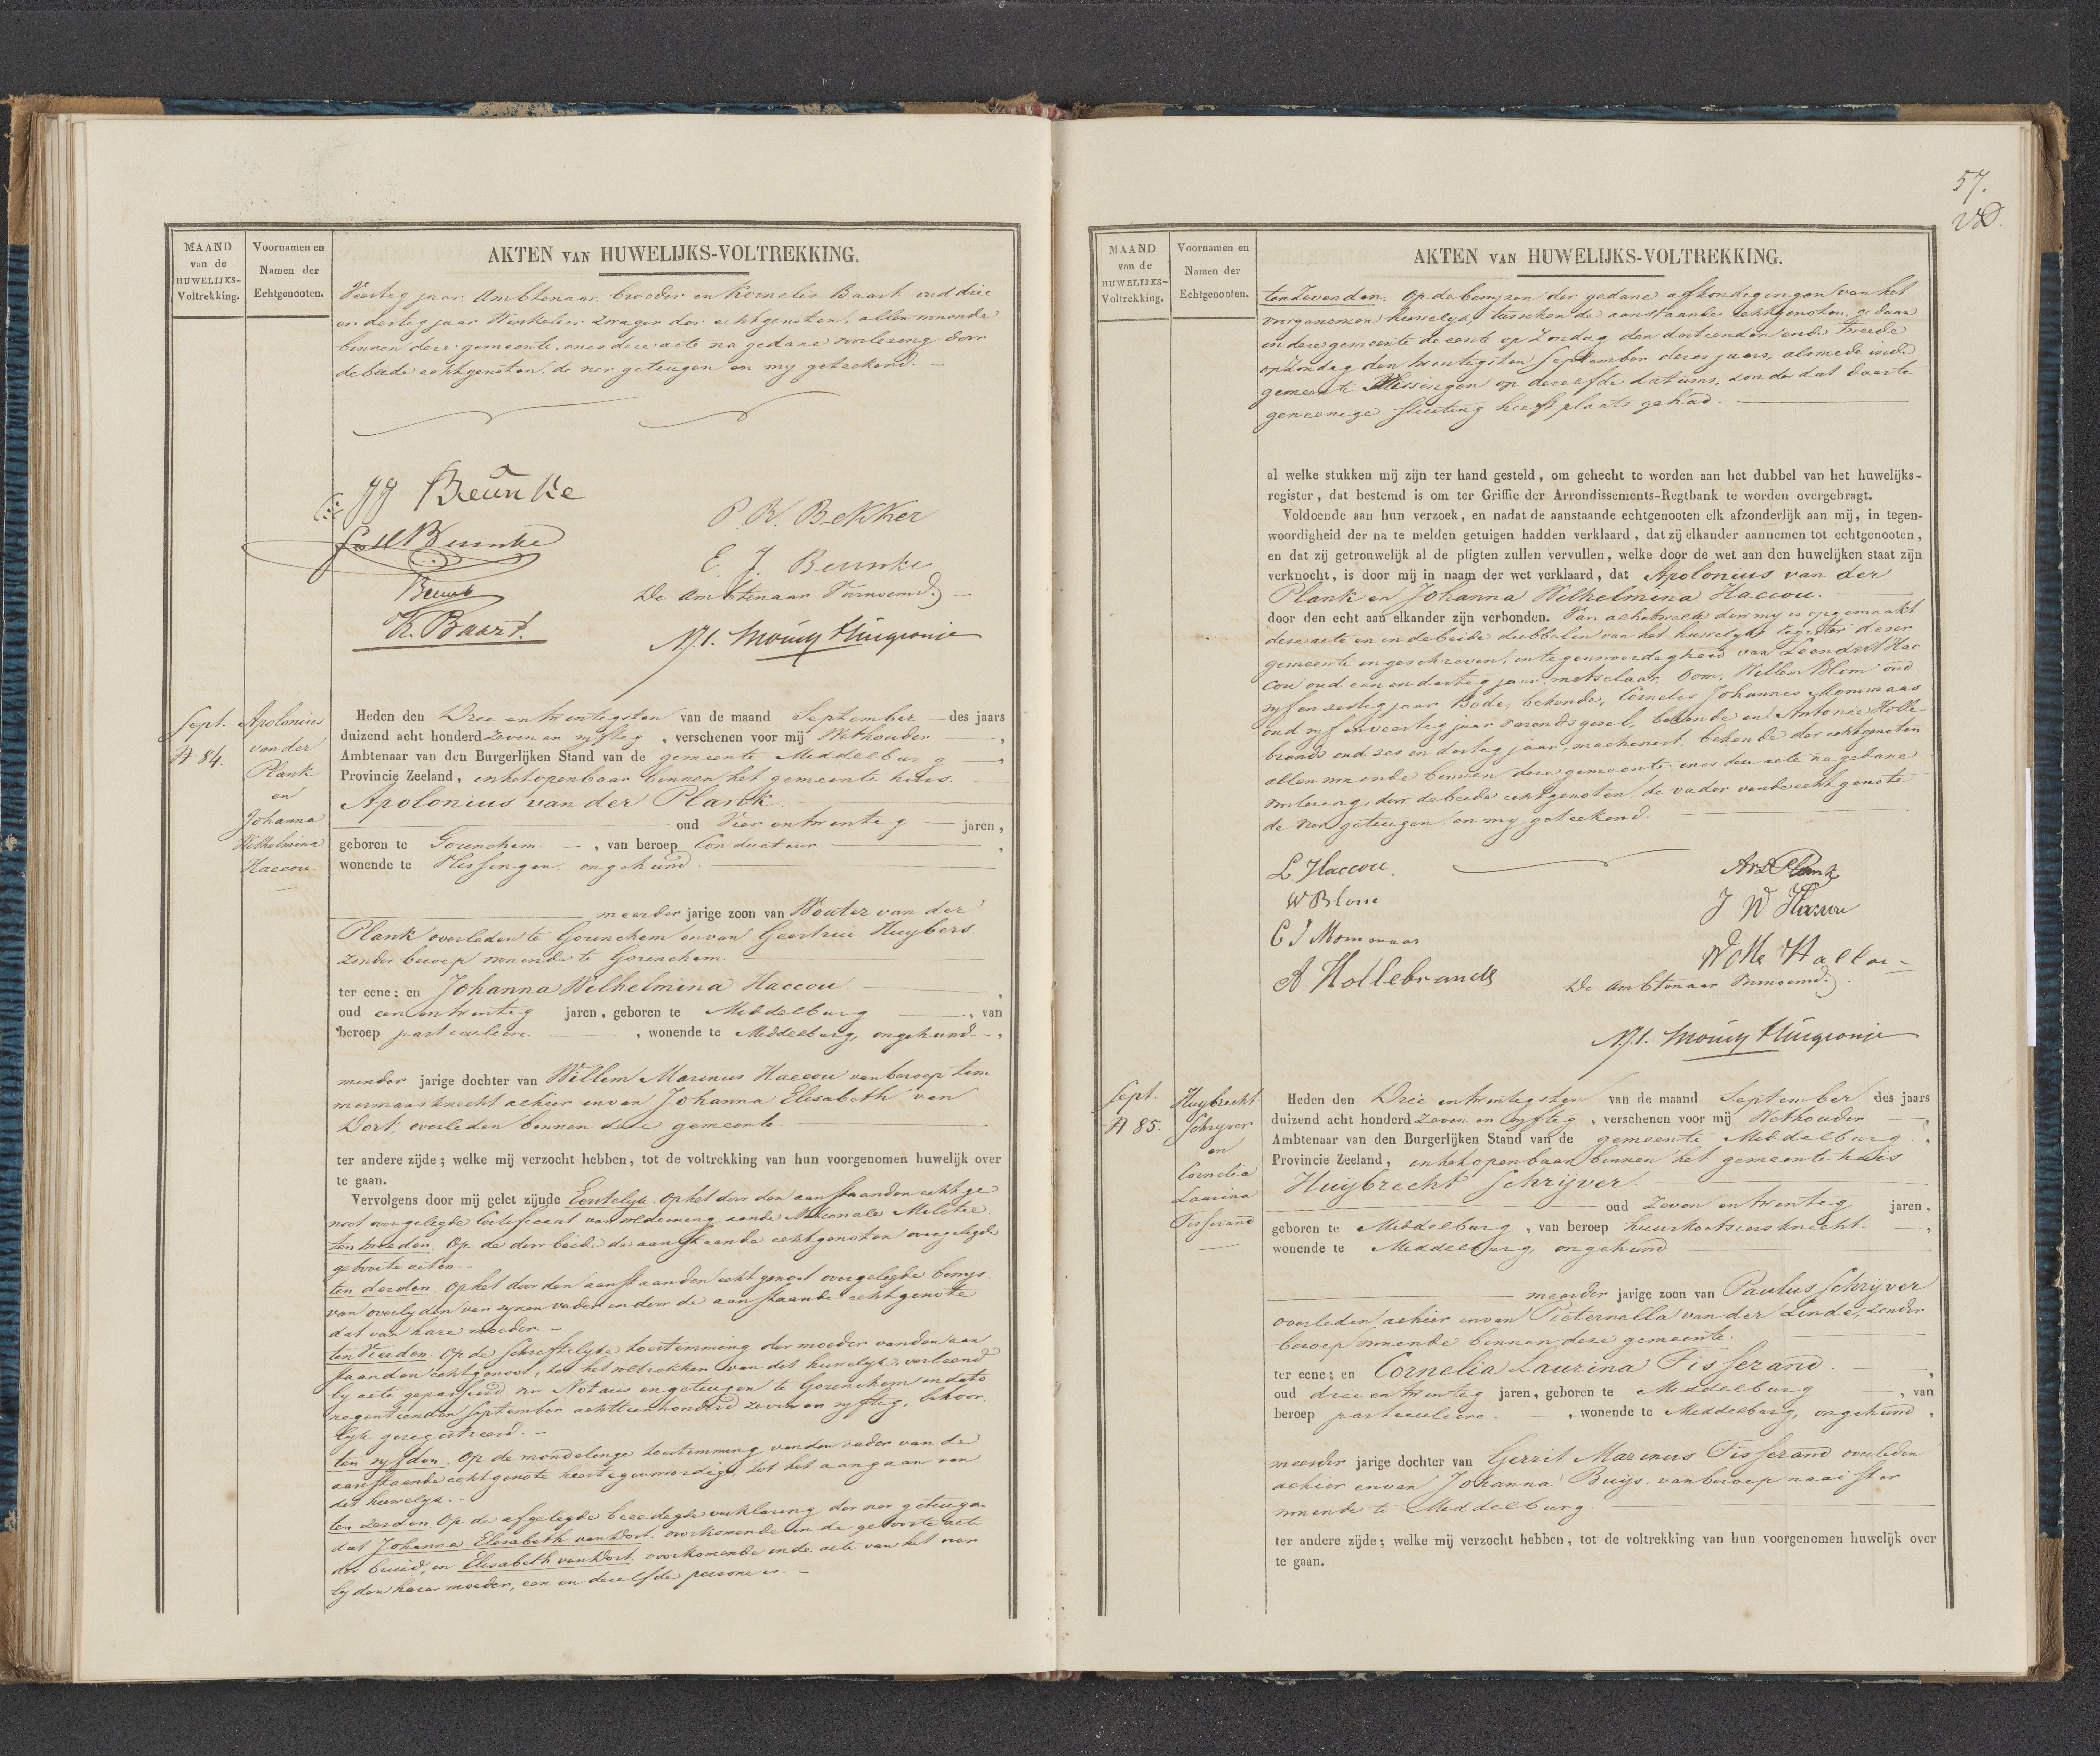 MAAND
van de
HUWELIJKS-
Voltrekking.
Voornamen en
Namen der
Echtgenooten.
AKTEN VAN HUWELIJKS-VOLTREKKING.
Veertig jaar, Ambtenaar, broeder en Kornelis Baart oud drie
en dertig jaar Winkelier zwager der echtgenoten, allen wonende
binnen deze gemeente, en is deze acte na gedane voorlezing door
de beide echtgenoten, de vier getuigen en my geteekend. —
JJ Beunke
P. K. Bekker
E. J. Beunke
Beunke
De Ambtenaar Voornoemd.)
K. Baart.
Sept.
N 84.
Apolonius
van der
Plank
en
Johanna
Wilhelmina
Haccou
Heden den Drie en twintigsten van de maand September — des jaars
duizend acht honderd zeven en vyftig, verschenen voor mij Wethouder —,
Ambtenaar van den Burgerlijken Stand van de gemeente Middelburg —,
Provincie Zeeland, in het openbaar binnen het gemeente huis. —
Apolonius van der Plank. —
oud Vier en twintig — jaren,
geboren te Gorinchem —, van beroep Conducteur —,
wonende te Vlissingen, ongehuwd —
meerder jarige zoon van Wouter van der
Plank overleden te Gorinchem en van Geertrui Huybers.
zonder beroep wonende te Gorinchem. —
ter eene; en Johanna Wilhelmina Haccou. —,
oud een en twintig jaren, geboren te Middelburg —, van
beroep particuliere. —, wonende te Middelburg, ongehuwd —,
minder jarige dochter van Willem Marinus Haccou van beroep tim
mermansknecht alhier en van Johanna Elisabeth van
Dort, overleden binnen deze gemeente. —
ter andere zijde; welke mij verzocht hebben, tot de voltrekking van hun voorgenomen huwelijk over
te gaan.
Vervolgens door mij gelet zijnde Eerstelyk. Op het door den aanstaanden echtge
noot overgelegde Certificaat van voldoening aan de Nationale Militie.
ten tweeden. Op de door beide de aanstaande echtgenoten overgelegde
geboorte acten. —
ten derden. Op het door den aanstaanden echtgenoot overgelegde bewys
van overlyden van zynen vader en door de aanstaande echtgenote
dat van hare moeder. —
ten Vierden. Op de schriftelyke toestemming der moeder van den aan
staanden echtgenoot, tot het voltrekken van dit huwelyk, verleend
by acte gepasseerd voor Notaris en getuigen te Gorinchem in dato
negentienden September achttienhonderd zeven en vyftig, behoor
lyk geregistreerd. —
ten vyfden. Op de mondelinge toestemming van den vader van de
aanstaande echtgenote hier tegenwoordig, tot het aangaan van
dit huwelyk. —
ten zesden Op de afgelegde beeedigde verklaring der vier getuigen
dat Johanna Elisabeth van Dort, voorkomende in de geboorte acte
der bruid, en Elisabeth van Dort, voorkomende in de acte van het over
lyden harer moeder, een en dezelfde persoon is. —
57.
MAAND
van de
HUWELIJKS-
Voltrekking.
Voornamen en
Namen der
Echtgenooten.
AKTEN VAN HUWELIJKS-VOLTREKKING.
ten Zevenden. Op de bewyzen der gedane afkondigingen van het
voorgenomen huwelyk, tusschen de aanstaande echtgenoten, gedaan
in deze gemeente de eerste op Zondag den dertienden en de tweede
op Zondag den twintigsten September dezes jaars, alsmede in de
gemeente Vlissingen op dezelfde datums, zonder dat daarte
gen eenige stuiting heeft plaats gehad. —
al welke stukken mij zijn ter hand gesteld, om gehecht te worden aan het dubbel van het huwelijks-
register, dat bestemd is om ter Griffie der Arrondissements-Regtbank te worden overgebragt.
Voldoende aan hun verzoek, en nadat de aanstaande echtgenooten elk afzonderlijk aan mij, in tegen-
woordigheid der na te melden getuigen hadden verklaard, dat zij elkander aannemen tot echtgenooten,
en dat zij getrouwelijk al de pligten zullen vervullen, welke door de wet aan den huwelijken staat zijn
verknocht, is door mij in naam der wet verklaard, dat Apolonius van der
Plank en Johanna Wilhelmina Haccou. —
door den echt aan elkander zijn verbonden. Van al hetwelk door my is opgemaakt
deze acte en in de beide dubbelen van het huwelyks register dezer
gemeente ingeschreven, in tegenwoordigheid van Leendert Hac
cou oud een en dertig jaar, metselaar, Oom, Willem Blom oud
vyf en zestig jaar Bode, bekende, Cornelis Johannes Mommaas
oud vyf en veertig jaar varendsgezel, bekende en Antonie Holle
brands oud zes en dertig jaar, machinist, bekende der echtgenoten
allen wonende binnen deze gemeente, en is deze acte na gedane
voorlezing, door de beide echtgenoten, de vader van de echtgenote
de vier getuigen, en my geteekend. —
L Haccou.
W Blom
C J Mommaas
A Hollebrands
A vd Plank
J W Haccou
De Ambtenaar Voornoemd.)
Sept.
N 85.
Huybrecht
Schryver
en
Cornelia
Laurina
Tisserand
Heden den Drie en twintigsten van de maand September des jaars
duizend acht honderd zeven en vyftig, verschenen voor mij Wethouder —,
Ambtenaar van den Burgerlijken Stand van de gemeente Middelburg,
Provincie Zeeland, in het openbaar binnen het gemeente huis
Huijbrecht Schrijver. —
oud zeven en twintig jaren,
geboren te Middelburg, van beroep huurkoetsiersknecht —,
wonende te Middelburg, ongehuwd —
meerder jarige zoon van Paulus Schryver
overleden alhier en van Pieternella van der Linde, zonder
beroep wonende binnen deze gemeente. —
ter eene; en Cornelia Laurina Tisserand. —,
oud drie en twintig jaren, geboren te Middelburg —, van
beroep particuliere. —, wonende te Middelburg, ongehuwd,
meerder jarige dochter van Gerrit Marinus Tisserand overleden
alhier en van Johanna Buijs. van beroep naaister
wonende te Middelburg. —
ter andere zijde; welke mij verzocht hebben, tot de voltrekking van hun voorgenomen huwelijk over
te gaan.